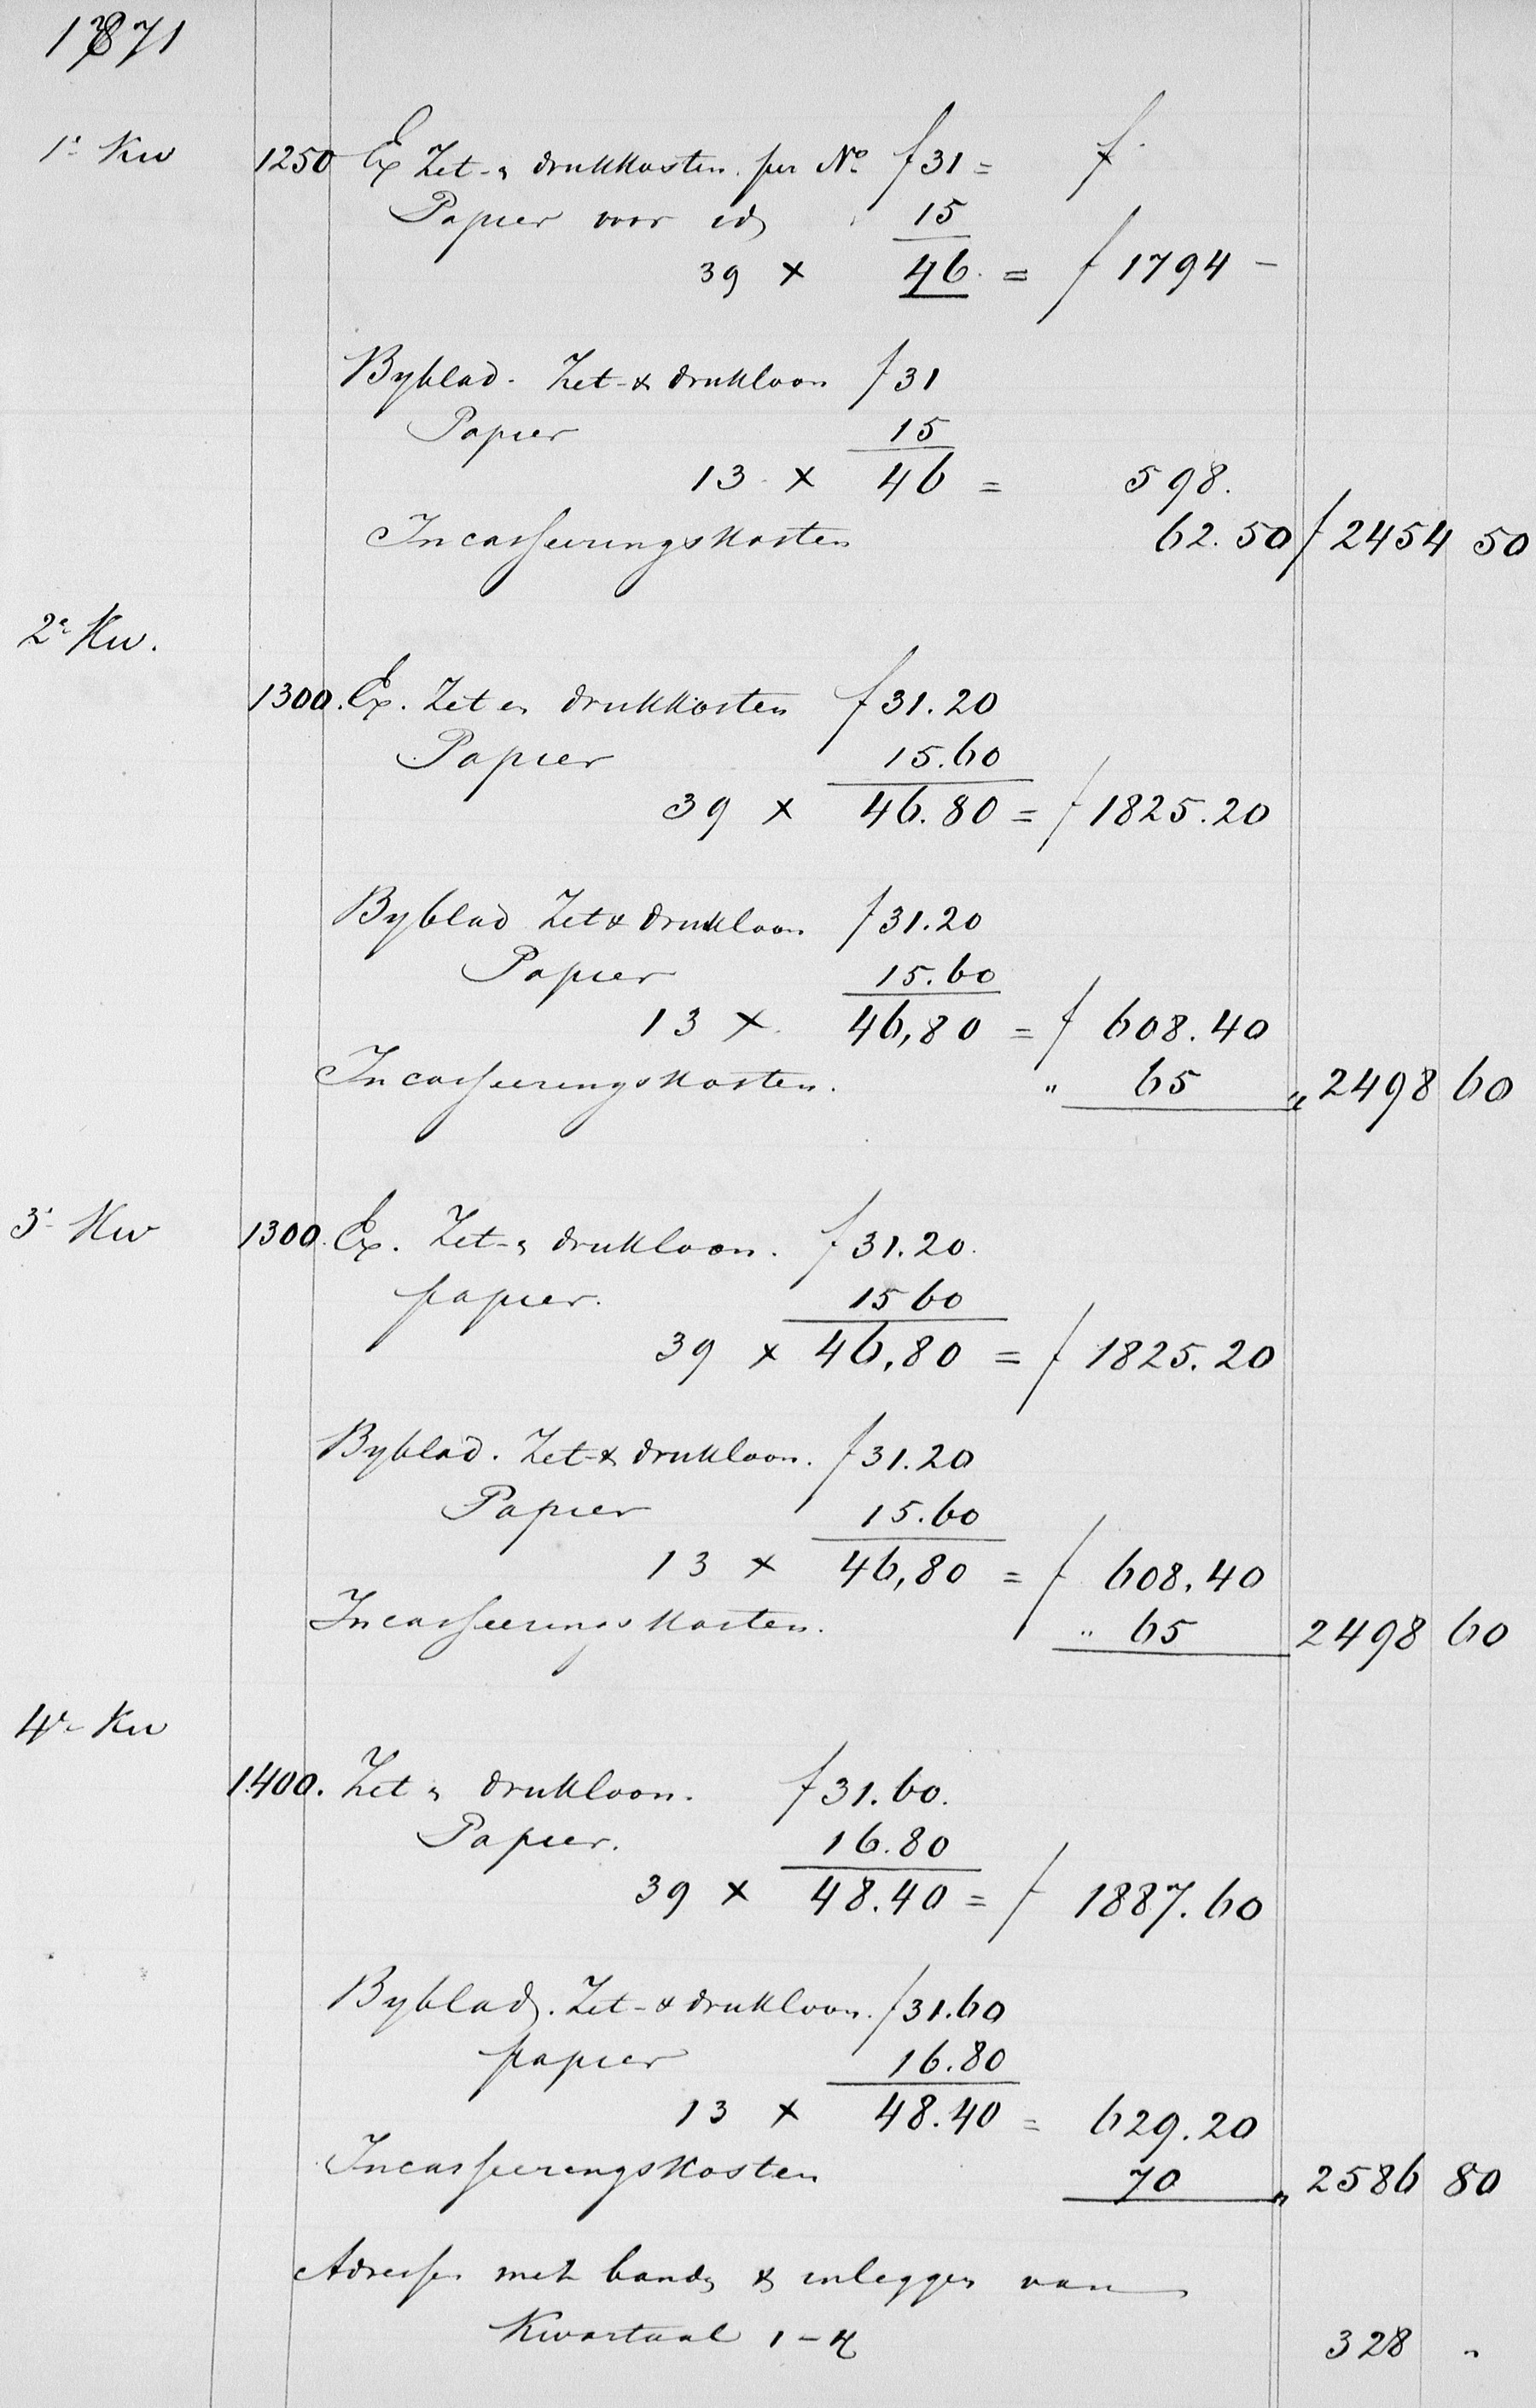 1871
1e Kw 1250 Ex Zet- & drukkosten per No f 31 = f
Papier voor id 15
39 x 46 = f 1794 –
Byblad. Zet- & drukloon f 31
Papier 15
13 x 46 = 598.
Incasseeringskosten 62.50 f 2454 50
2e Kw.
1300. Ex. Zet en drukkosten f 31.20
Papier 15.60
39 x 46.80 = f 1825.20
Byblad Zet & drukloon f 31.20
Papier 15.60
13 x 46,80 = f 608.40
Incasseeringskosten. " 65 " 2498 60
3e Kw 1300. Ex. Zet- & drukloon. f 31.20.
papier. 15 60
39 x 46,80 = f 1825.20
Byblad. Zet- & drukloon. f 31.20
Papier 15.60
13 x 46,80 = f 608.40
Incasseeringskosten. " 65 2498 60
4e Kw
1400. Zet & drukloon. f 31.60.
Papier. 16.80
39 x 48.40 = f 1887.60
Byblad. Zet- & drukloon. f 31.60
papier 16.80
13 x 48.40 = 629.20
Incasseeringskosten 70 " 2586 80
Adresse met band & inleggen van
Kwartaal 1-4 328 "